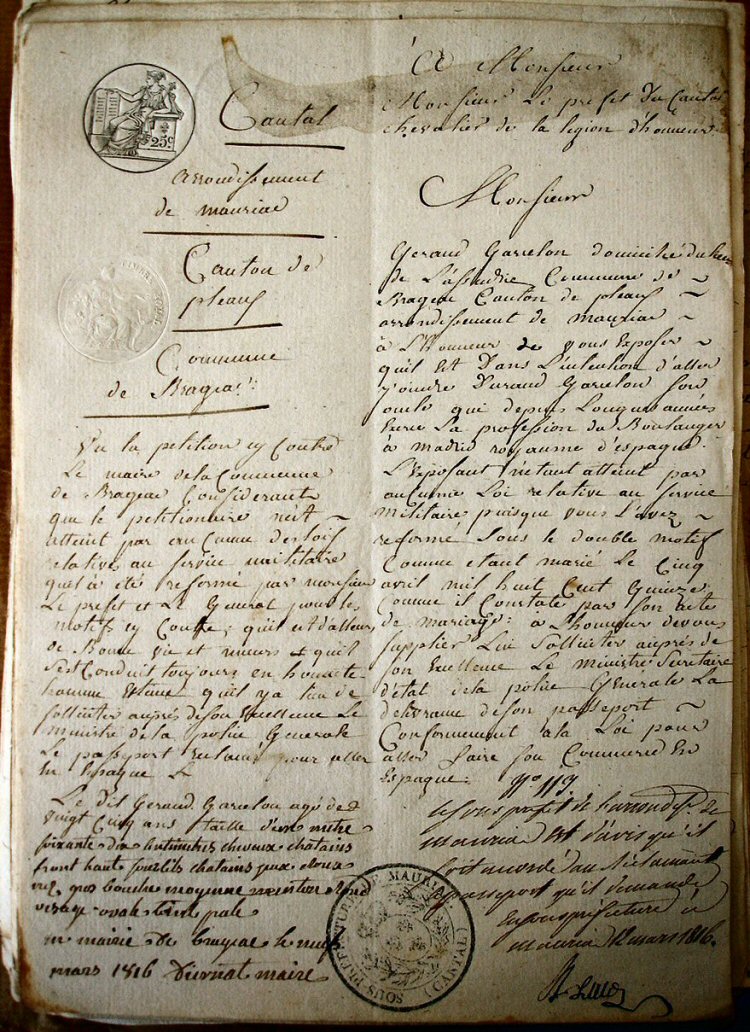 25c
Cantal
arrondissement
de mauriac
Canton de
pleaux
Commune
de Brageac
Vu la petition cy Contre
Le maire de la Commune
de Brageac Considerant
que le petitionaire n'est
atteint par aucune des lois
relative au service militaire
quil à été reformé par monsieur
Le prefet et Le General pour les
motifs cy Contre, qu'il est d'ailleurs
de Bonne vie et meurs et quil
s'est Conduit toujours en honnete
homme Estime qu'il y a lieu de
solliciter auprés de son Exellence Le
ministre de la police Generale
Le passeport reclamé pour aller
En Espagne
Le dit Geraud Garcelon agé de
vingt Cinq ans taille d'un metre
soixante dix centimetres cheveux chatains
front haut sourcils chatains yeux
nez gros bouche moyenne menton rond
visage ovale teint pale
en mairie de brageac le neuf
mars 1816 maire
A Monsieur
Monsieur Le prefet du Cantal
chevalier de la legion d'honneur
Monsieur
Geraud Garcelon domicilié du lieu
de Commune de
Brageac Canton de pleaux
arrondissement de mauriac
à L'honneur de vous Exposer
qu'il Est Dans L'intention d'aller
joindre Durand Garcelon son
oncle qui depuis Longues années
Exerce La profession de Boulanger
à madrid royaume d'espagne.
L'Exposant n'etant atteint par
aucunne Loi relative au service
militaire, puisque vous L'avez
reformé sous le double motif
Comme etant marié Le Cinq
avril mil huit Cent Quinze
Comme il Constate par son acte
de mariage: à L'honneur de vous
supplier Lui solliciter auprés de
son Exellence Le ministre secretaire
d'état de la police Generale La
delivrance de son passeport
Conformement a la Loi pour
aller faire son Commerce En
Espagne.
N° 113
Le sous prefet de L'arrondist. de
mauriac est d'avis qu'il
soit accordé au Réclamant
le passeport qu'il demande
En sous prefecture à
mauriac 12 mars 1816.
SOUS PREFECTURE DE MAURIAC (CANTAL)